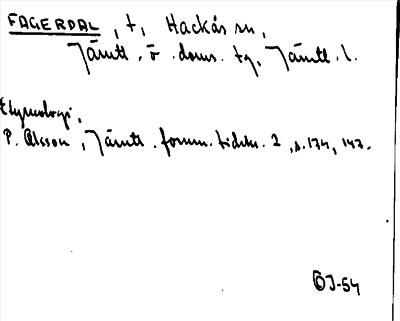 FAGERDAL, t, Hackås sn,
Jämtl. ö. doms. tg, Jämtl. l.
Etymologi,
P. Olsson, Jämtl. fornm. tidskr. 2, s. 174, 147.
ÖJ-54